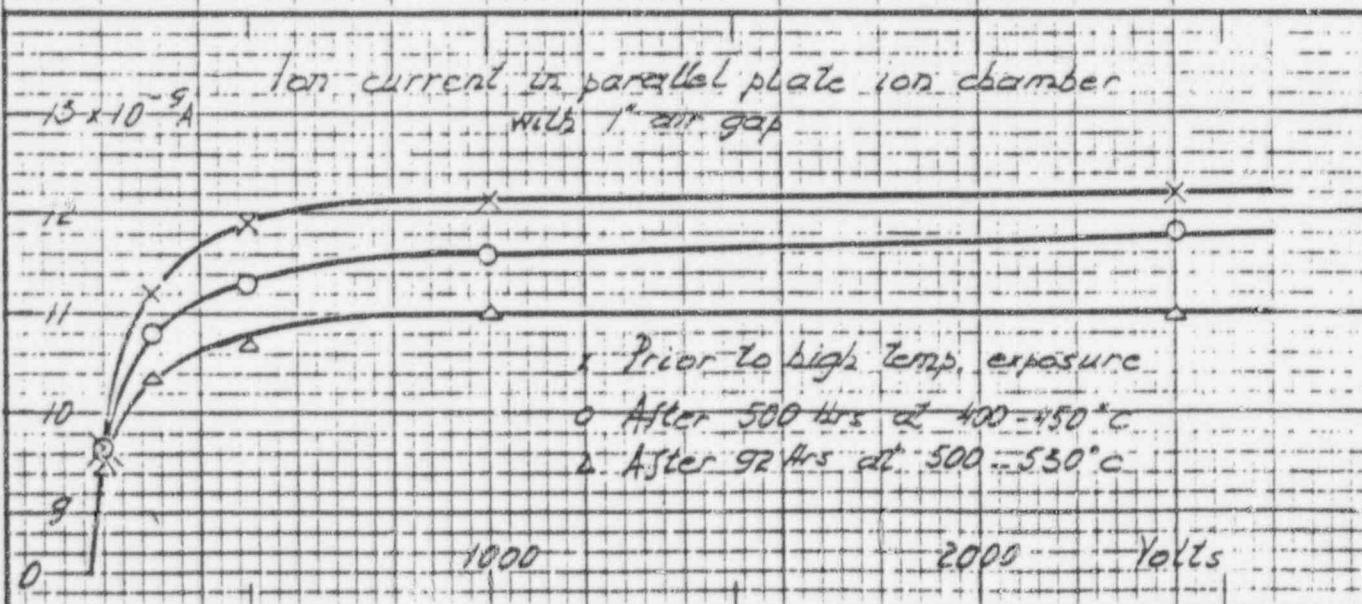 Ion current in parallel plate ion chamber
with 1" air gap
13 x 10⁻⁹A
12
11
x Prior to high temp. exposure
10
o After 500 Hrs at 400-450°C
Δ After 92 Hrs at 500-530°C
9
0
1000
2000
Volts